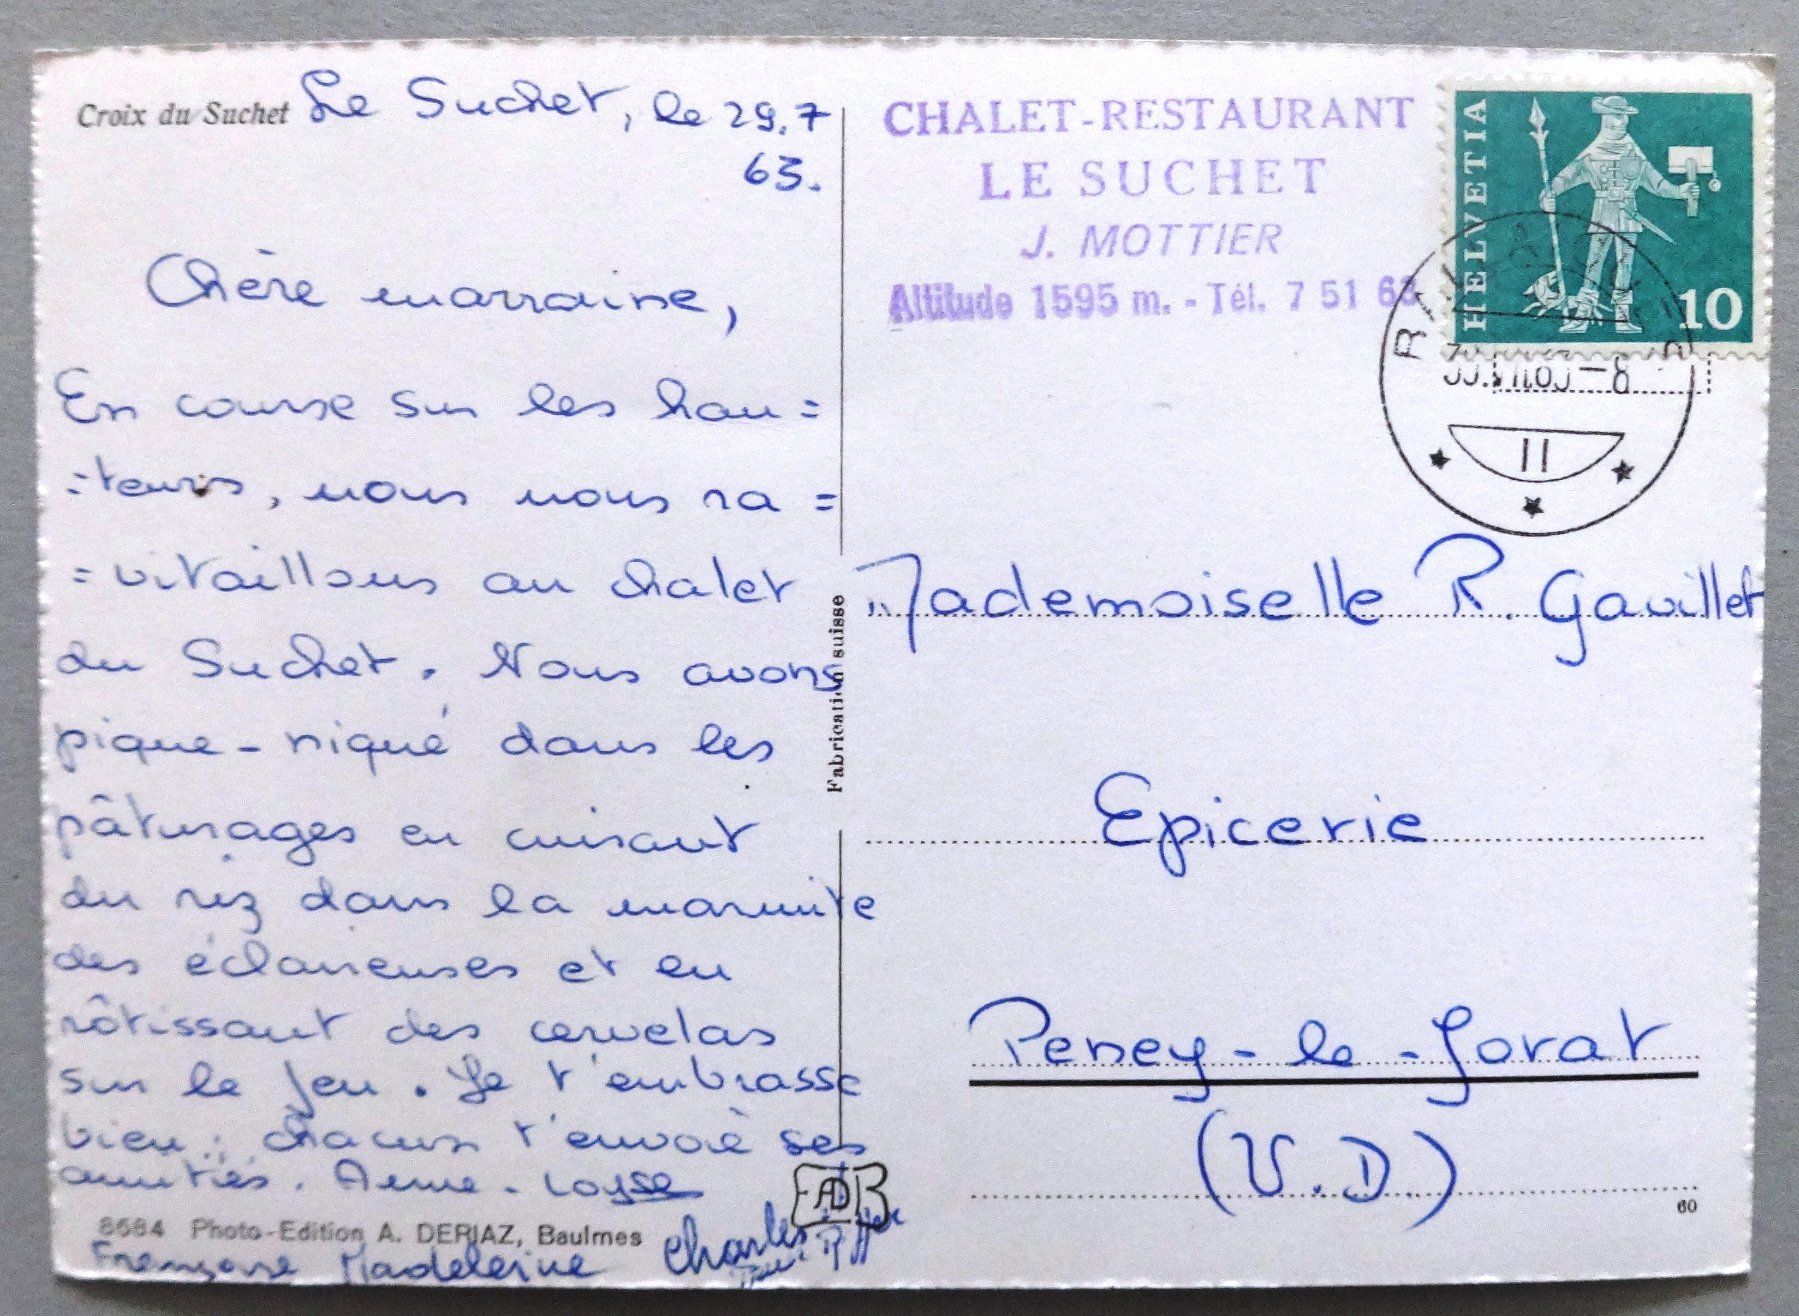 Croix du Suchet
Le Suchet, le 29.7
63.
Chère marraine,
En course sur les hau=
=teurs, nous nous ra=
=vitaillons au chalet
du Suchet. Nous avons
pique-niqué dans les
pâturages en cuisant
du riz dans la marmite
des éclaireuses et en
rôtissant des cervelas
sur le feu. Je t'embrasse
bien; chacun t'envoie ses
amitiés. Anne-Loyse
8684 Photo-Edition A. DERIAZ, Baulmes
Madeleine Charles
Fabrication suisse
CHALET-RESTAURANT
LE SUCHET
J. MOTTIER
Altitude 1595 m. - Tél. 7 51 63
HELVETIA
10
II
Mademoiselle R. Gavillet
Epicerie
Peney-le-Jorat
(V.D.)
60